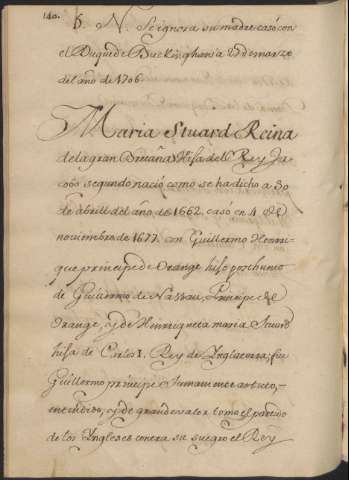 140.
5. N. Se ignora su madre casó con
el Duque de Buckingham a 27 de marzo
del año de 1706.
Maria Stuard Reina
de la gran Bretaña Hija del Rey Ja-
cobo segundo nació como se ha dicho a 30
de abrill del año de 1662. casó en 4 de
noviembre de 1677. con Guillermo Henri-
que principe de Orange hijo posthumo
de Guillermo de Nassau, Principe de
Orange, y de Henriqueta maria Stuard
hija de Carlos I. Rey de Inglaterra; fue
Guillermo principe sumamente astuto,
entendido, y de grande valor como el partido
de los Ingleses contra su suegro el Rey